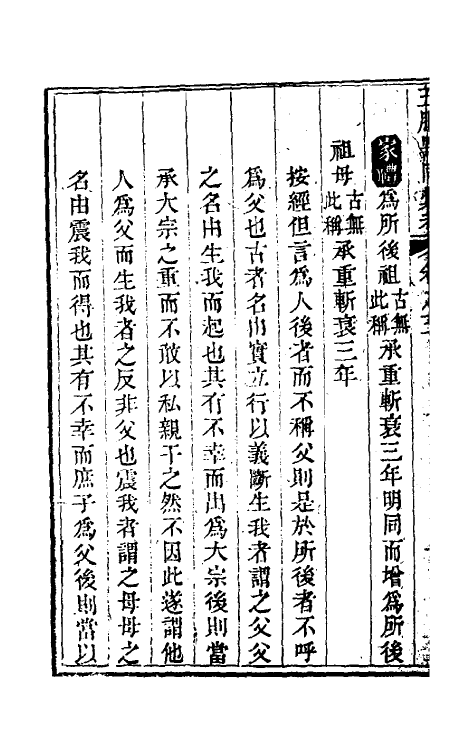 家禮為所後祖古無此稱承重斬衰三年明同而增為所後
祖母古無此稱承重斬衰三年
按經但言為人後者而不稱父則是於所後者不呼
為父也古者名由實立行以義斷生我者謂之父父
之名由生我而起也其有不幸而出為大宗後則當
承大宗之重而不敢以私親干之然不因此遂謂他
人為父而生我者之反非父也震我者謂之母母之
名由震我而得也其有不幸而庶子為父後則當以